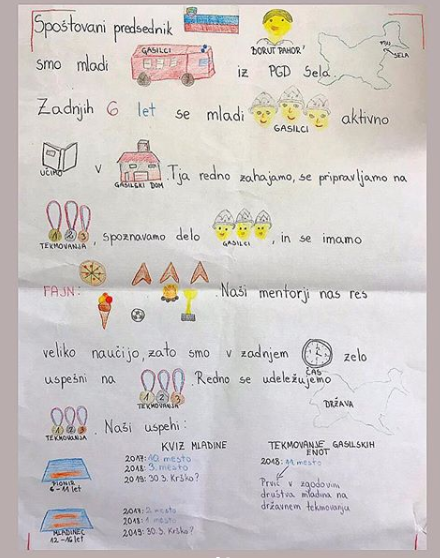 Spoštovani predsednik
BORUT PAHOR
PGD SELA
smo mladi GASILCI iz PGD Sela.
Zadnjih 6 let se mladi GASILCI aktivno
UČIMO v GASILSKI DOM. Tja redno zahajamo, se pripravljamo na
TEKMOVANJA, spoznavamo delo GASILCI, in se imamo
FAJN: . Naši mentorji nas res
veliko naučijo, zato smo v zadnjem ČAS zelo
uspešni na TEKMOVANJA. Redno se udeležujemo
DRŽAVA
TEKMOVANJA. Naši uspehi:
KVIZ MLADINE
PIONIR
6 - 11 let
2017: 10. mesto
2018: 9. mesto
2019: 30.3. Krško?
MLADINEC
12 - 16 let
2017: 2. mesto
2018: 1. mesto
2019: 30.3. Krško?
TEKMOVANJE GASILSKIH
ENOT
2018: 11. mesto
Prvič v zgodovini
društva mladina na
državnem tekmovanju